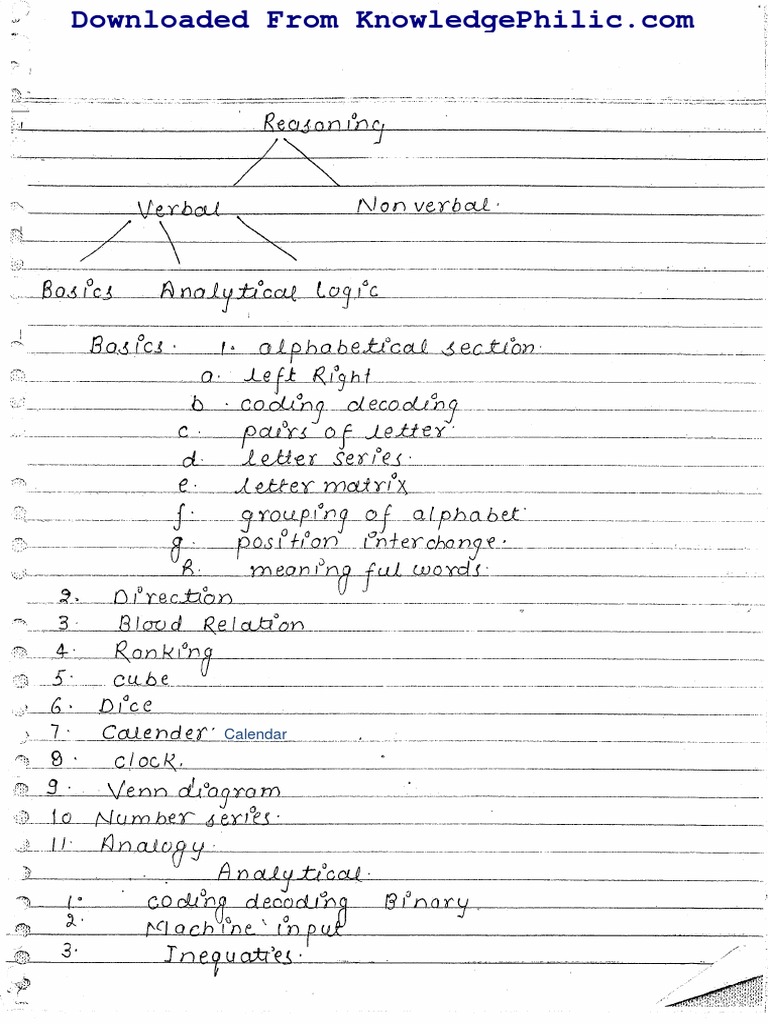 Downloaded From KnowledgePhilic.com
Reasoning
Verbal Nonverbal.
Basics Analytical Logic
Basics. 1. alphabetical section.
a. left Right
b. coding decoding
c. pairs of letter.
d. letter series.
e. letter matrix
f. grouping of alphabet
g. position interchange.
h. meaning ful words.
2. Direction
3. Blood Relation
4. Ranking
5. cube
6. Dice
7. Calender. Calendar
8. clock.
9. Venn diagram
10 Number series.
11. Analogy.
Analytical.
1. coding decoding Binary.
2. Machine input
3. Inequaties.